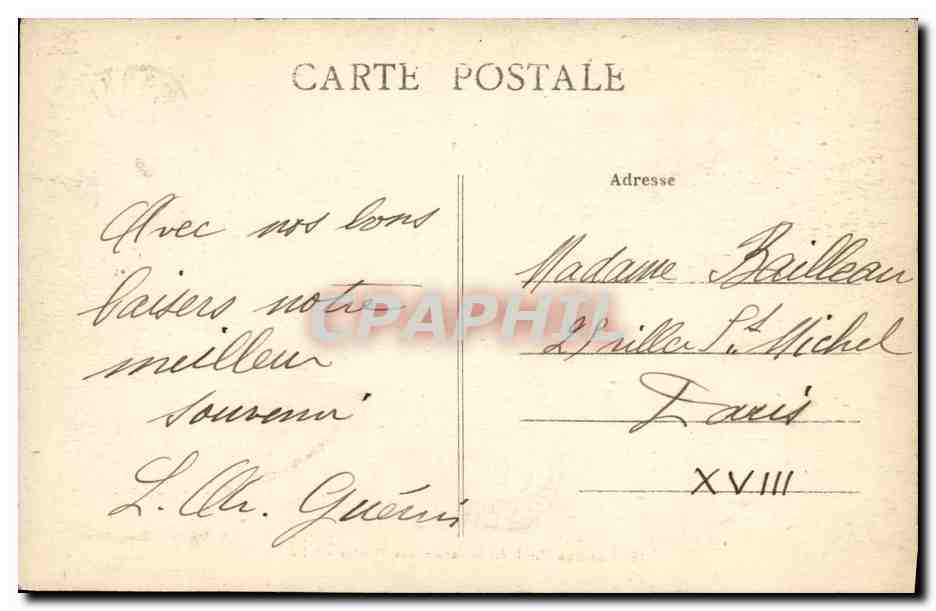 CARTE POSTALE
Avec nos bons
baisers notre
meilleur
souvenir
L. Ch. Guérin
Adresse
Madame Bailleau
villa St. Michel
Paris
XVIII
CPAPHIL